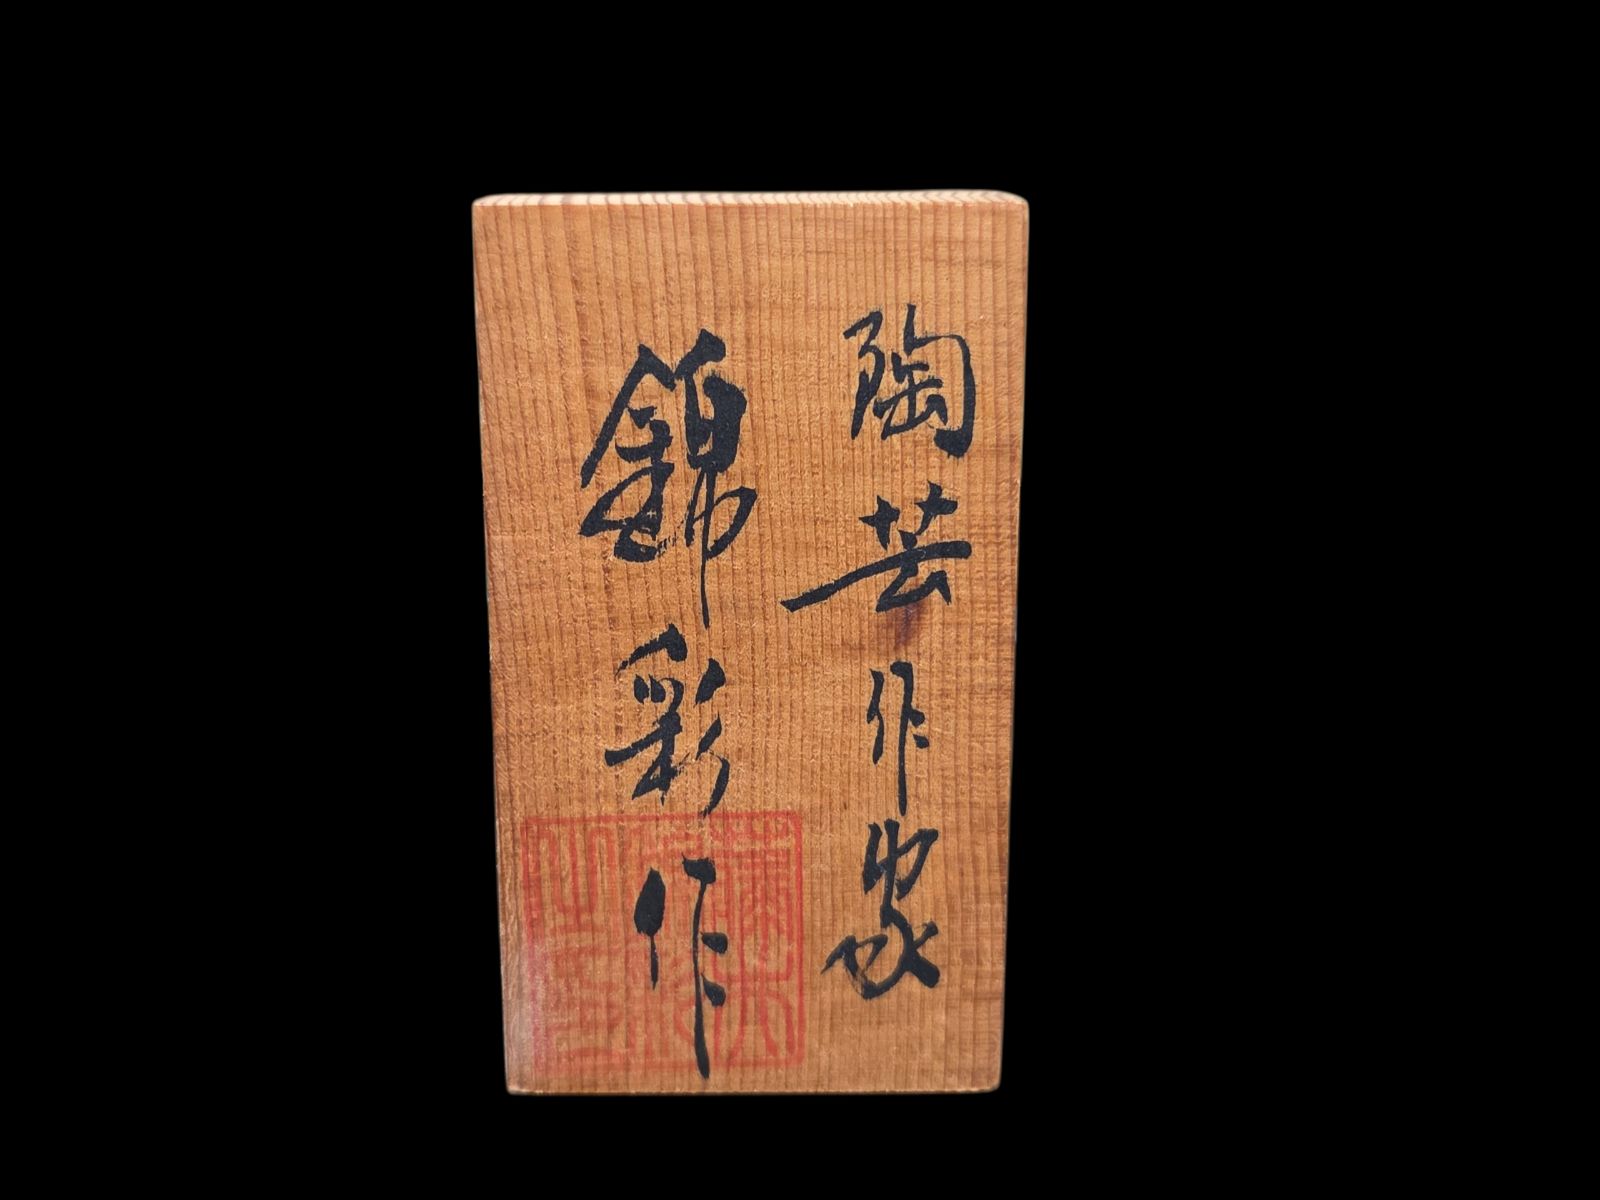 陶芸作家
錦彩作